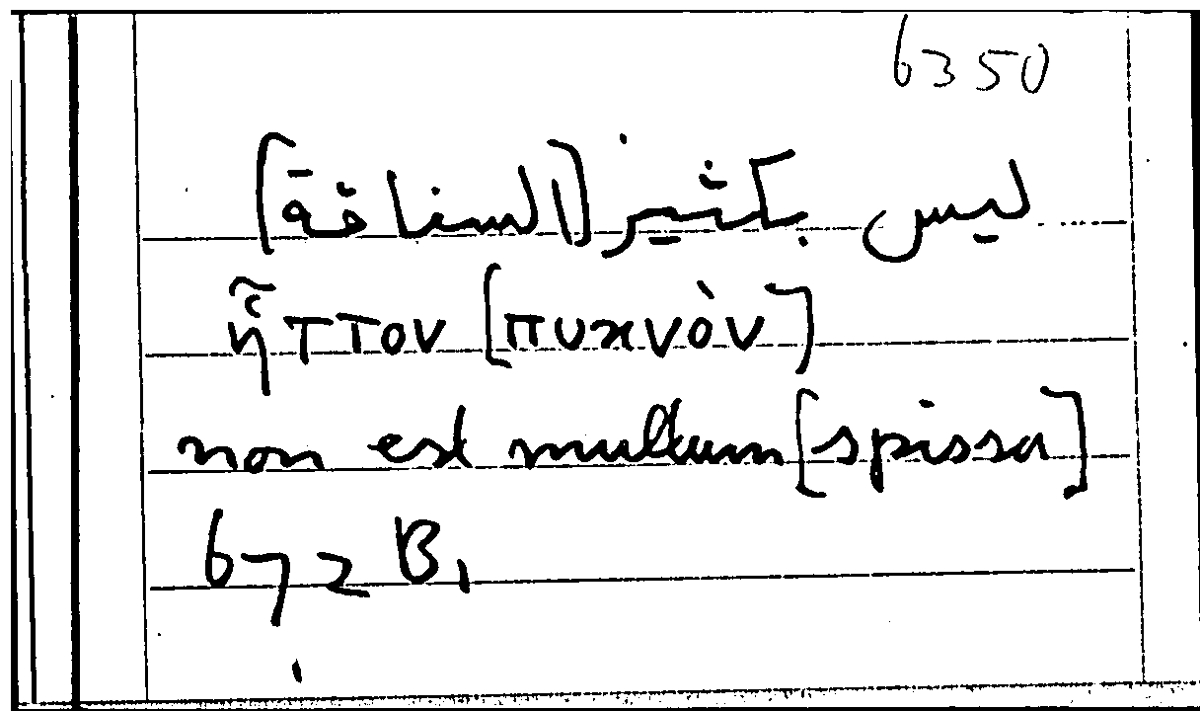 6350
ليس بكثير [السخافة]
ἧττον [πυκνὸν]
non est multum [spissa]
672 B,